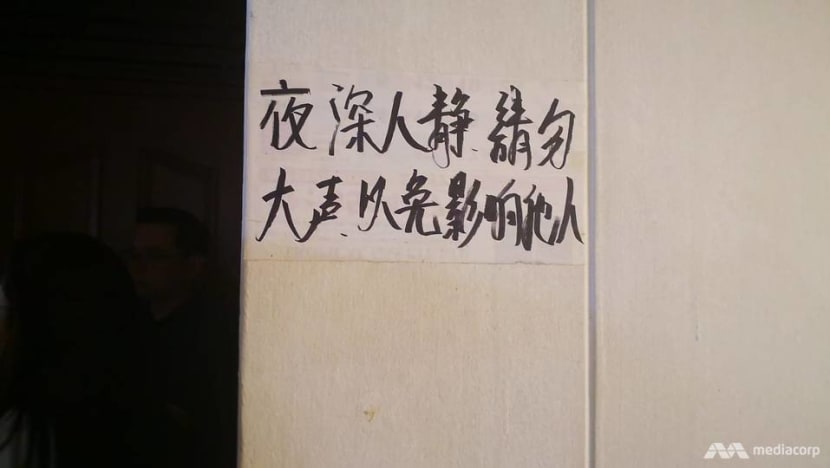 夜深人静、請勿
大声、以免影响他人
mediacorp